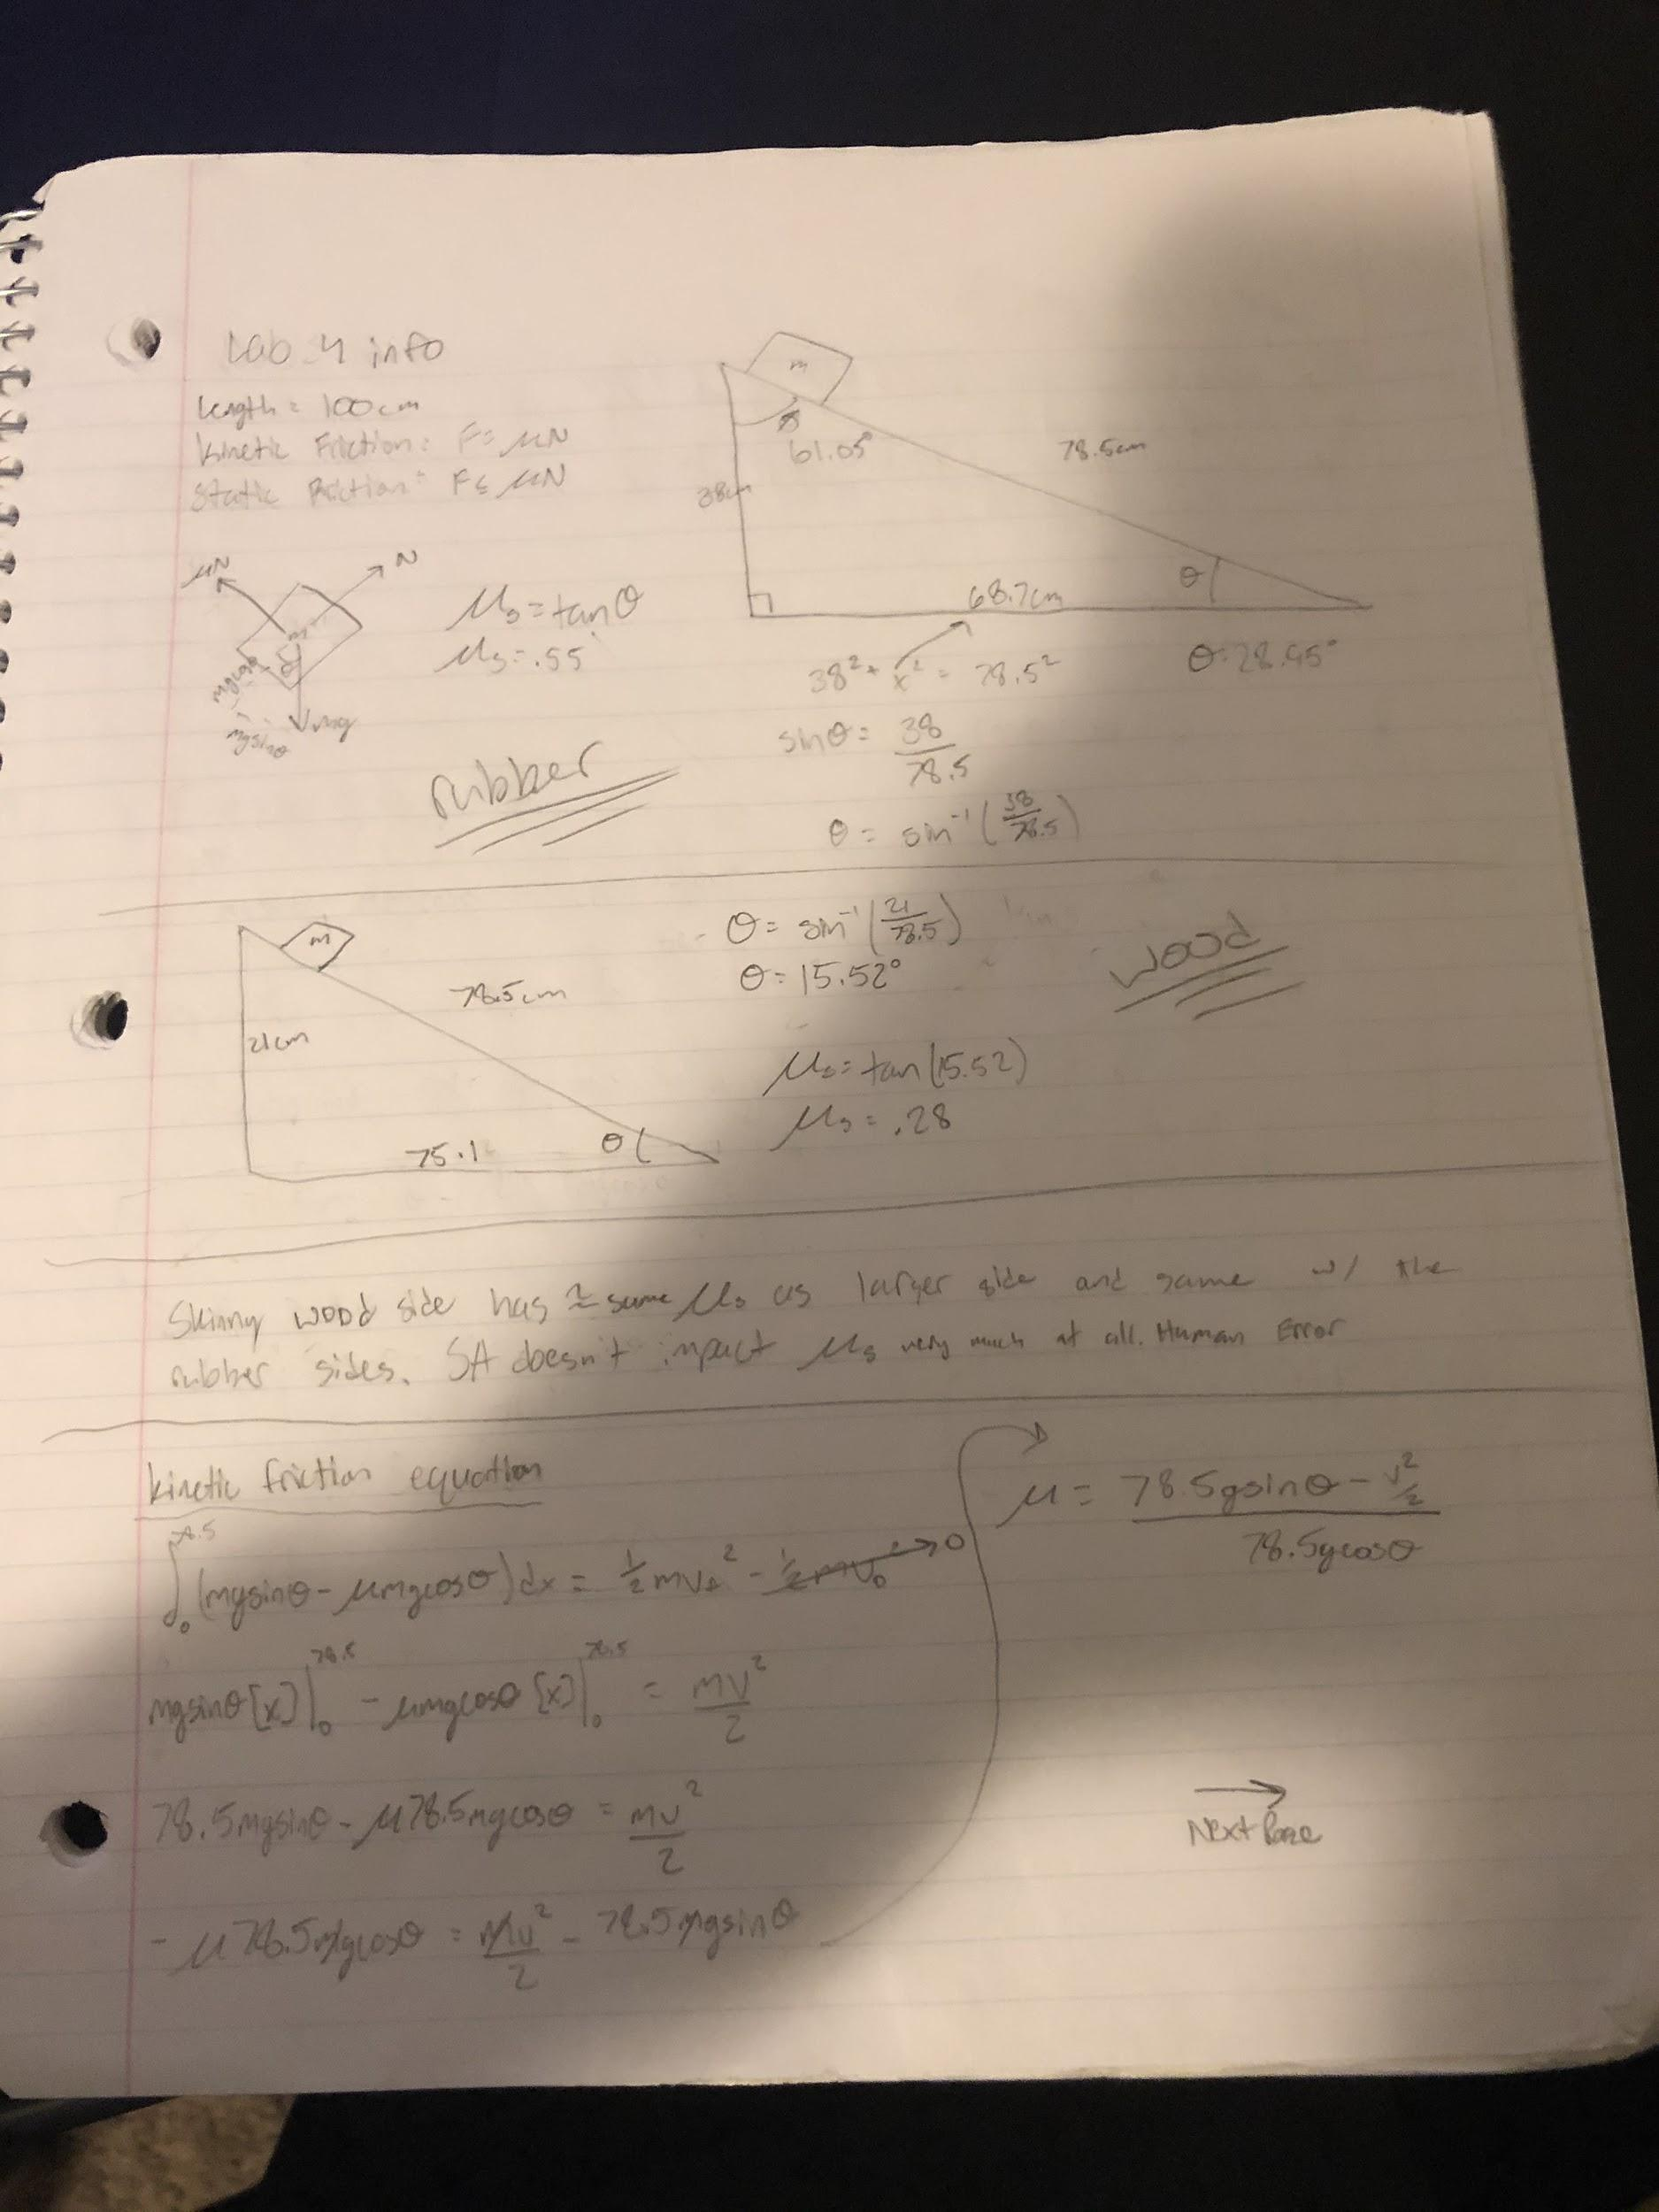 Lab 4 info
Length = 100cm
Kinetic Friction: F = μN
Static Friction: F ≤ μN
m
61.05°
78.5cm
38cm
θ
68.7cm
θ = 28.45°
μN
N
mgcosθ
mgsinθ
mg
μs = tanθ
μs = .55
38² + x² = 78.5²
sinθ = 38/78.5
θ = sin⁻¹(38/78.5)
rubber
m
78.5cm
21cm
75.1
θ
θ = sin⁻¹(21/78.5)
θ = 15.52°
wood
μs = tan(15.52)
μs = .28
Skinny wood side has ≈ same μs as larger side and same w/ the
rubber sides. SA doesn't impact μs very much at all. Human Error
kinetic friction equation
∫₀^78.5 (mgsinθ - μmgcosθ)dx = ½mv_f² - ½mv₀² → 0
mgsinθ[x]|₀^78.5 - μmgcosθ[x]|₀^78.5 = mv²/2
78.5mgsinθ - μ78.5mgcosθ = mv²/2
-μ78.5mgcosθ = mv²/2 - 78.5mgsinθ
μ = (78.5gsinθ - v²/2)/(78.5gcosθ)
Next Page